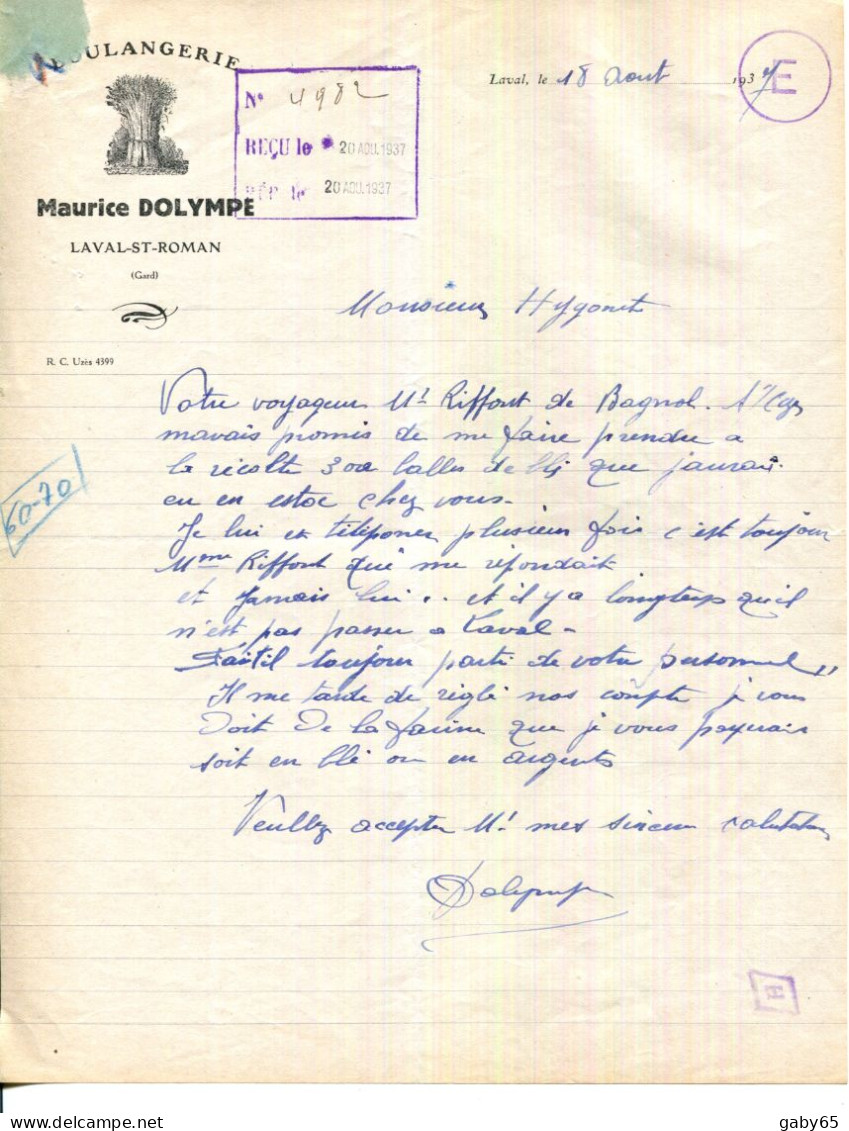 BOULANGERIE
Maurice DOLYMPE
LAVAL-ST-ROMAN
(Gard)
R. C. Uzès 4399
N° 4982
REÇU le 20 AOU. 1937
RÉP. le 20 AOU. 1937
Laval, le 18 Aout 1937
E
Monsieur Hygonet
Votre voyageur Mr Riffort de Bagnol.
mavais promis de me faire prendre a
la récolte 300 balles de blé que jaurai
eu en estoc chez vous.
Je lui et téléponer plusieur fois c'est toujour
Mme Riffort qui me répondait
et Jamais lui .. et il y a longteps qu'il
n'est pas passer a Laval -
Fait il toujour parti de votre personnel
Il me tarde de réglé nos compte je vous
Doit De la farine que je vous payerais
soit en blé ou en argents
Veuillez accepter Mr mes sincer salutation
Dolympe
60-70
H
gaby65